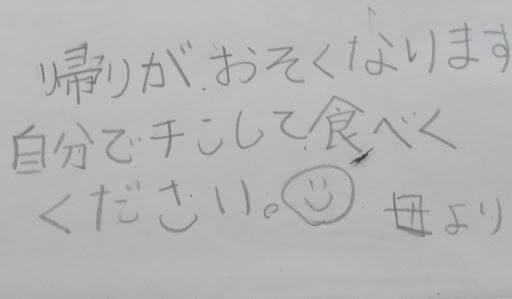 帰りが、おそくなります
自分でチンして食べく
ください。☺ 母より